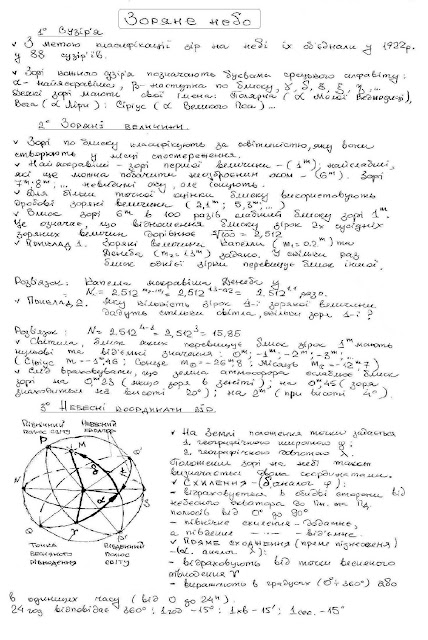 Зоряне небо
1° Сузір'я
✓ З метою класифікації зір на небі їх об'єднали у 1922р.
у 88 сузір'їв.
✓ Зорі кожного сузір'я позначають буквами грецького алфавіту:
α - найяскравіша, β - наступна по блиску, γ, δ,
Деякі зорі мають свої імена: Полярна (α Малої Ведмедиці),
Вега (α Ліри); Сіріус (α Великого Пса) ...
2° Зоряні величини.
✓ Зорі по блиску класифікують за освітленістю, яку вони
створюють у місці спостереження.
✓ Найяскравіші - зорі першої величини - (1ᵐ); найслабші,
які ще можна побачити неозброєним оком - (6ᵐ). Зорі
7ᵐ, 8ᵐ, ... невидимі оку, але існують.
✓ Для більш точної оцінки блиску використовують
дробові зоряні величини (2,1ᵐ; 5,3ᵐ; ...)
✓ Блиск зорі 6ᵐ в 100 разів слабший блиску зорі 1ᵐ.
Це означає, що відношення блиску зірок 2х сусідніх
зоряних величин дорівнює ⁵√100 = 2,512
✓ Приклад 1. Зоряні величини Капели (m₁ = 0.2ᵐ) та
Денеба (m₂ = 1.3ᵐ) задано. У скільки раз
блиск однієї зірки перевищує блиск іншої.
Розв'язок: Капела яскравіша Денеба у
N = 2,512 = 2,512 = 2,512 раза.
✓ Приклад 2. Яку кількість зірок 1-ї зоряної величини
Розв'язок: N = 2.512⁴⁻¹ = 2,512³ = 15,85
✓ Світила, блиск яких перевищує блиск зірок 1ᵐ мають
нульові та від'ємні значення: 0ᵐ; -1ᵐ; -2ᵐ; ...
(Сіріус
✓ Слід враховувати, що земна атмосфера ослаблює блиск
зорі на 0ᵐ23 (якщо зоря в зеніті); на 0ᵐ45 (зоря
знаходиться на висоті 20°); на 2ᵐ (при висоті 4°).
3° Небесні координати зір.
Північний
полюс світу
Небесний
P
M
Q
γ
P'
Точка
весняного
рівнодення
Південний
полюс
світу
✓ На Землі положення точки задається
1. географічною широтою φ;
2. географічною довготою λ.
Положення зорі на небі також
визначається двома координатами.
✓ Схилення - (δ аналог φ):
- відраховується в обидві сторони від
небесного екватора до Пн. та Пд.
полюсів від 0° до 90°
- північне схилення - додатне,
а південне - від'ємне.
✓ Пряме сходження (пряме піднесення)
- (α аналог λ):
- відраховують від точки весняного
рівнодення γ
- виражають в градусах (0° ÷ 360°) або
в одиницях часу (від 0 до 24ʰ).
24 год відповідає 360°; 1 год - 15°; 1 хв - 15'; 1 сек. - 15"